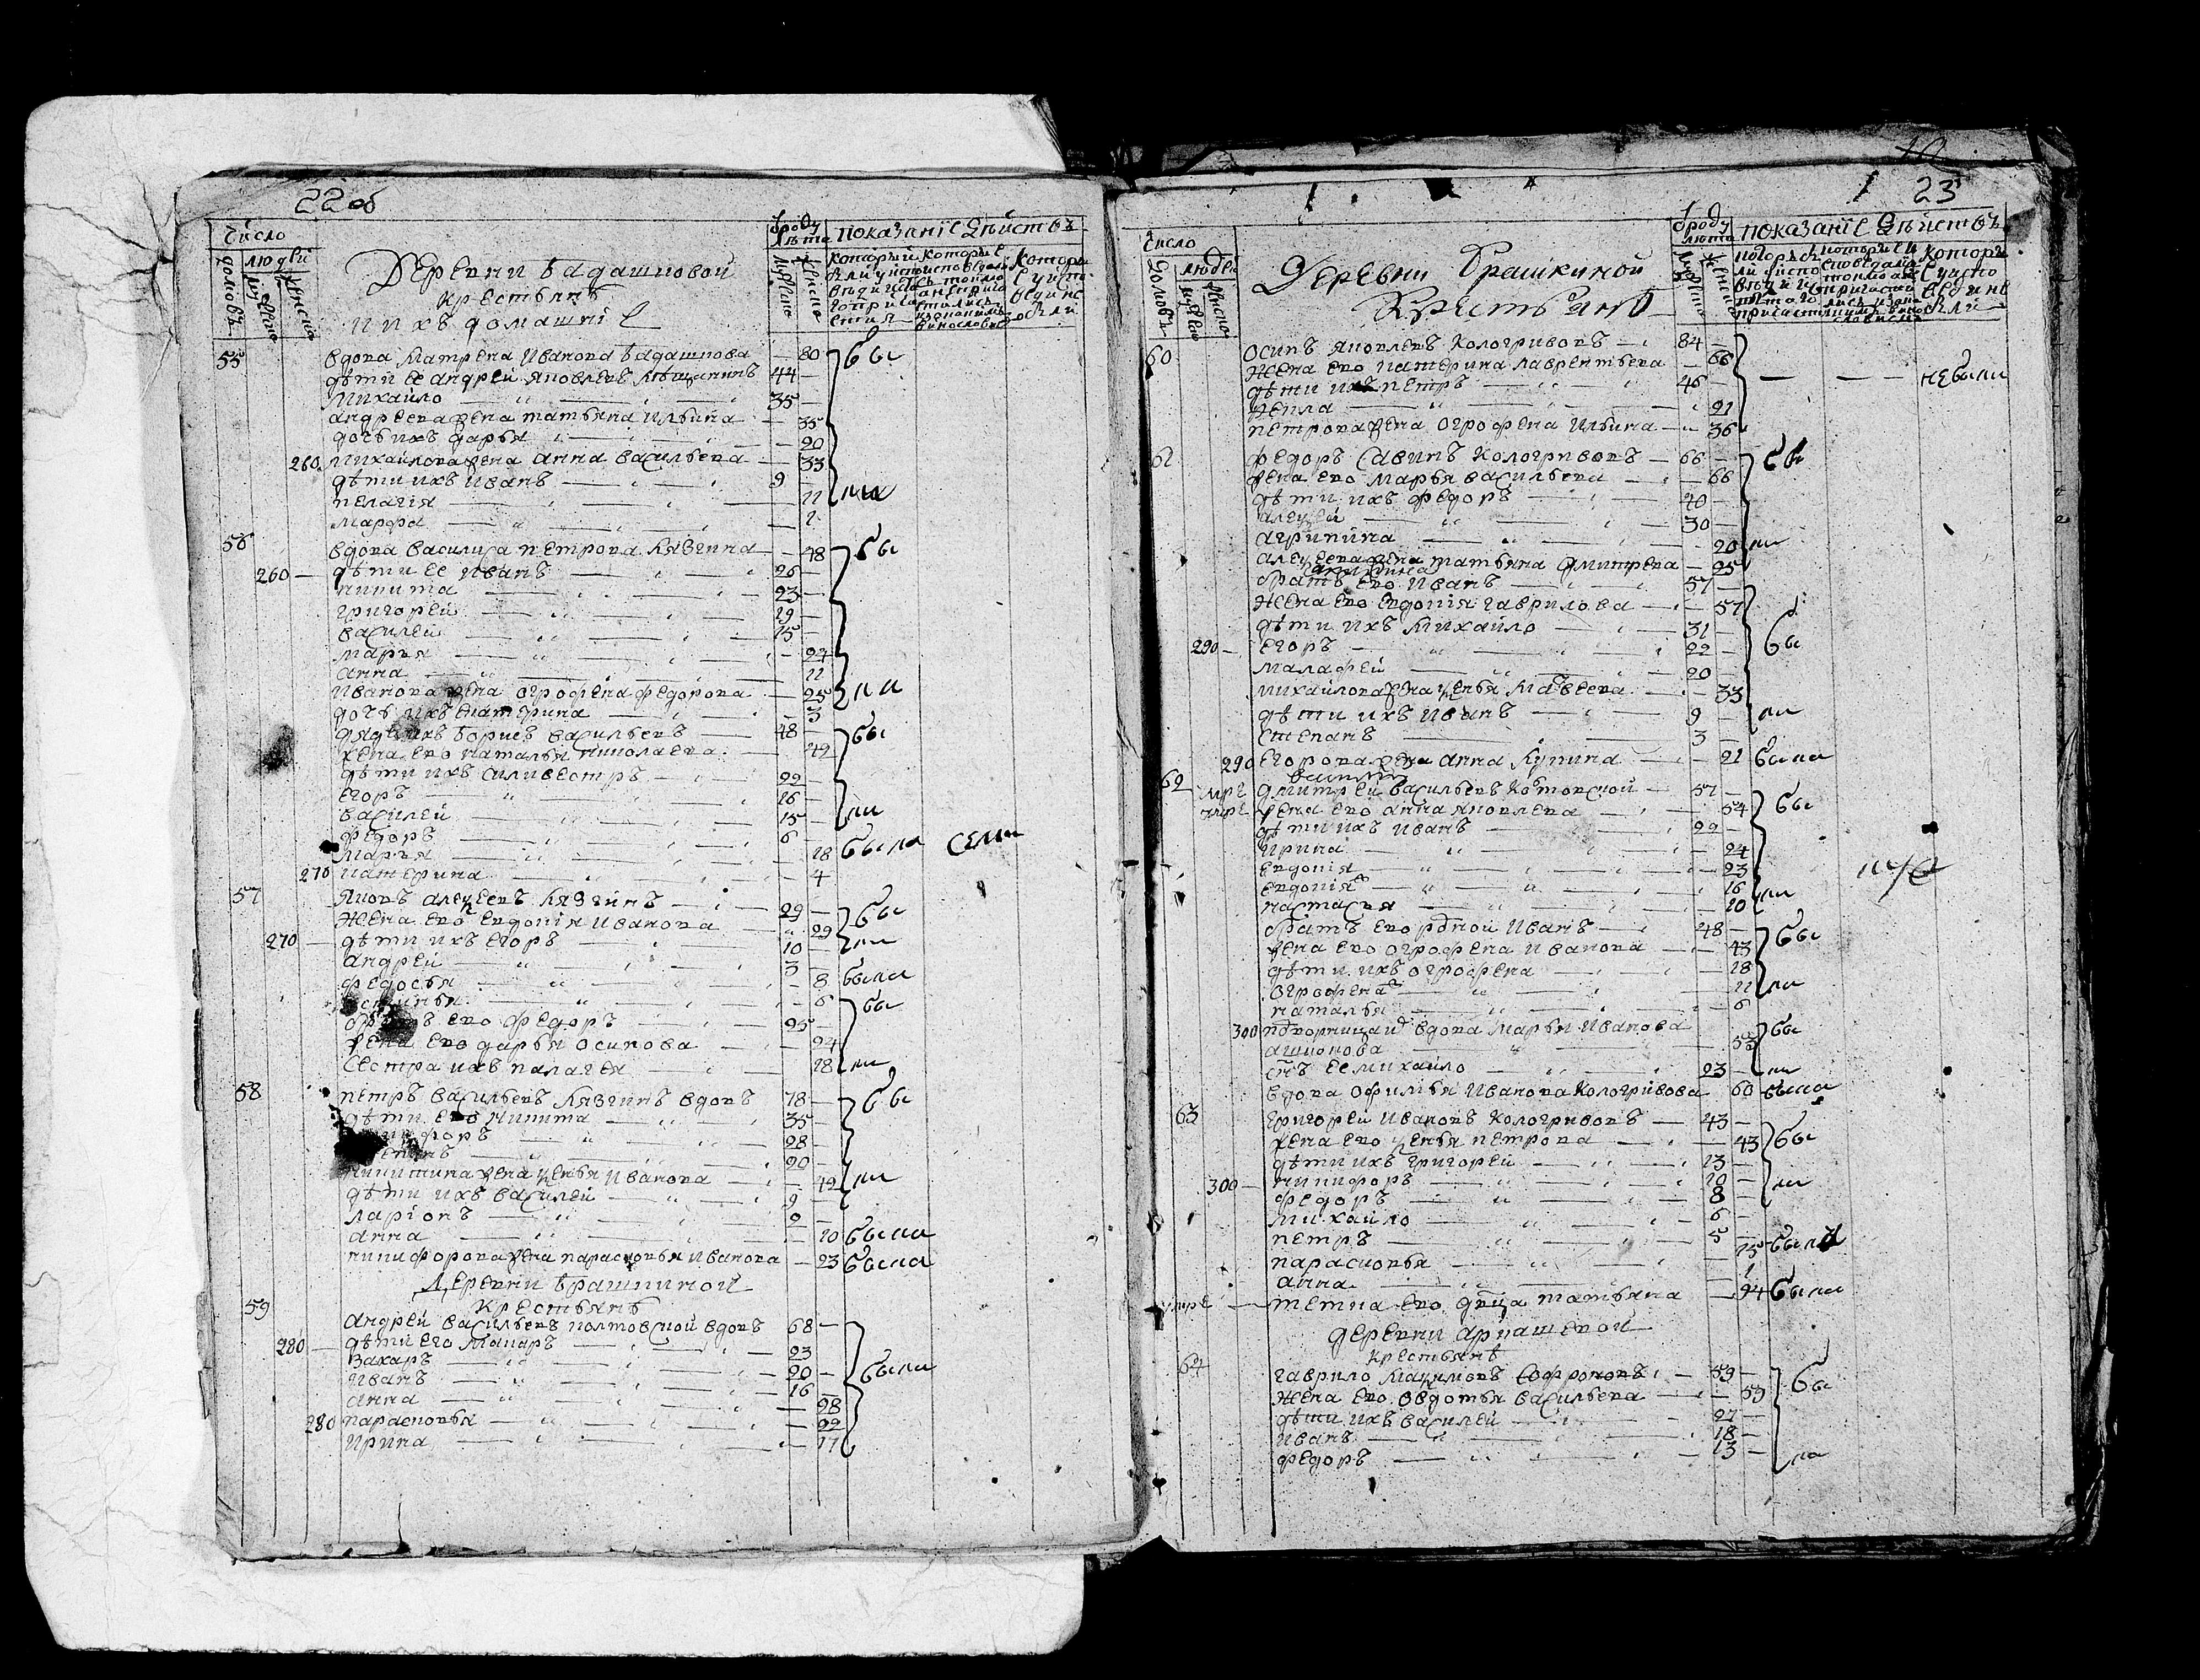 22 об
число
людей
домовъ
мужеско
женско
Деревни Бадашковой
крестьянѣ
и ихъ домашнїе
ѿ роду лѣта
мужеска
женска
показанїе дѣйствъ
55 вдова Матрена Иванова Бадашкова — 80 бы
дѣти ее андрей яковлевъ 44 —
Михайло — 35 —
андреева жена татьяна ильина — 35
дочь ихъ дарья — 20
260 михайлова жена анна васильева — 33
дѣти ихъ иванъ — 9 —
пелагїя — 11 ли
марфа — 1
56 вдова василиса петрова Кязгина — 48 бы
260 — дѣти ее иванъ — 26 —
никита — 23 —
григорей — 19 —
василей — 15 —
марья — 24
анна — 11
иванова жена огрофена федорова — 25 ли
дочь ихъ екатерина — 3
дядя ихъ борисъ васильевъ — 48 — бы
жена ево наталья николаева — 49
дѣти ихъ силивестръ — 22 —
егоръ — 16 —
василей — 15 — ли
федоръ — 6 —
марья — 18 была
270 катерина — 4
57 яковъ алексеевъ Кязгинъ — 29 — бы
жена ево евдокїя иванова — 29
270 — дѣти ихъ егоръ — 10 — ли
андрей — 3 —
федосья — 8 была
устинья — 6 бы
братъ ево федоръ — 25 —
жена ево дарья осипова — 24
сестра ихъ палагея — 18 ли
58 петръ васильевъ Кязгинъ вдовъ 78 — бы
дѣти ево никита — 35 —
никифоръ — 28 —
20 —
никитина жена ксенья иванова — 49 ли
дѣти ихъ василей — 9 —
ларїонъ — 2 —
анна — 10 была
никифорова жена парасковья иванова — 23 была
Деревни Брашкиной
крестьянѣ
59 андрей васильевъ колтовской вдовъ 68 —
280 — дѣти его макаръ — 23
захаръ — 20 — были
иванъ — 16
анна — 28
280 парасковья — 22
ирина — 17
23
число
людей
домовъ
Деревни Брашкиной
Крестьянѣ
ѿ роду лѣта
показанїе дѣйствъ
60 осипъ яковлевъ Кологривовъ — 84 —
жена ево катерина лаврентьева — 66
дѣти ихъ петръ — 46 — — — небыли
фекла — 21
петрова жена огрофена ильина — 36
61 федоръ савинъ Кологривовъ — 66 — бы
жена ево марья васильева — 66
дѣти ихъ федоръ — 40 —
алексей — 30 —
агрипина — 20 ли
алексеева жена татьяна дмитрева — 25
братъ ево иванъ — 57 —
жена ево евдокїя гаврилова — 57
дѣти ихъ михайло — 31 — бы
290 — егоръ — 22 —
малафей — 20
михайлова жена ксенья матвеева — 33
дѣти ихъ иванъ — 9 — ли
степанъ — 3 —
290 егорова жена анна Кузмина — 21 была
62 дмитрей васильевъ Колтовской — 57 —
умре жена ево анна яковлева — 54 бы
дѣти ихъ иванъ — 22 —
ирина — 24
евдокїя — 23
евдокїя — 16 ли
настасья — 10
братъ ево родной иванъ — 48 — бы
жена ево огрофена иванова — 43
дѣти ихъ огрофена — 18
огрофена — 11 ли
наталья — 6
300 подворница ихъ вдова марья иванова бы
53
сынъ ее михайло — 23 — ли
вдова офимья иванова Кологривова 60 была
63 григорей ивановъ Кологривовъ — 43 —
жена ево ксенья петрова — 43 бы
дѣти ихъ григорей — 13 —
300 — никифоръ — 10 — ли
федоръ — 8 —
михайло — 6 —
петръ — 5 —
парасковья — 15 была
анна — 1
умре — тетка ево дѣвица татьяна — 94 была
деревни аркашевой
крестьянѣ
64 гаврило максимовъ софроновъ — 59 —
жена ево овдотья васильева — 59 бы
дѣти ихъ василей — 27 —
иванъ — 18 —
федоръ — 13 — ли